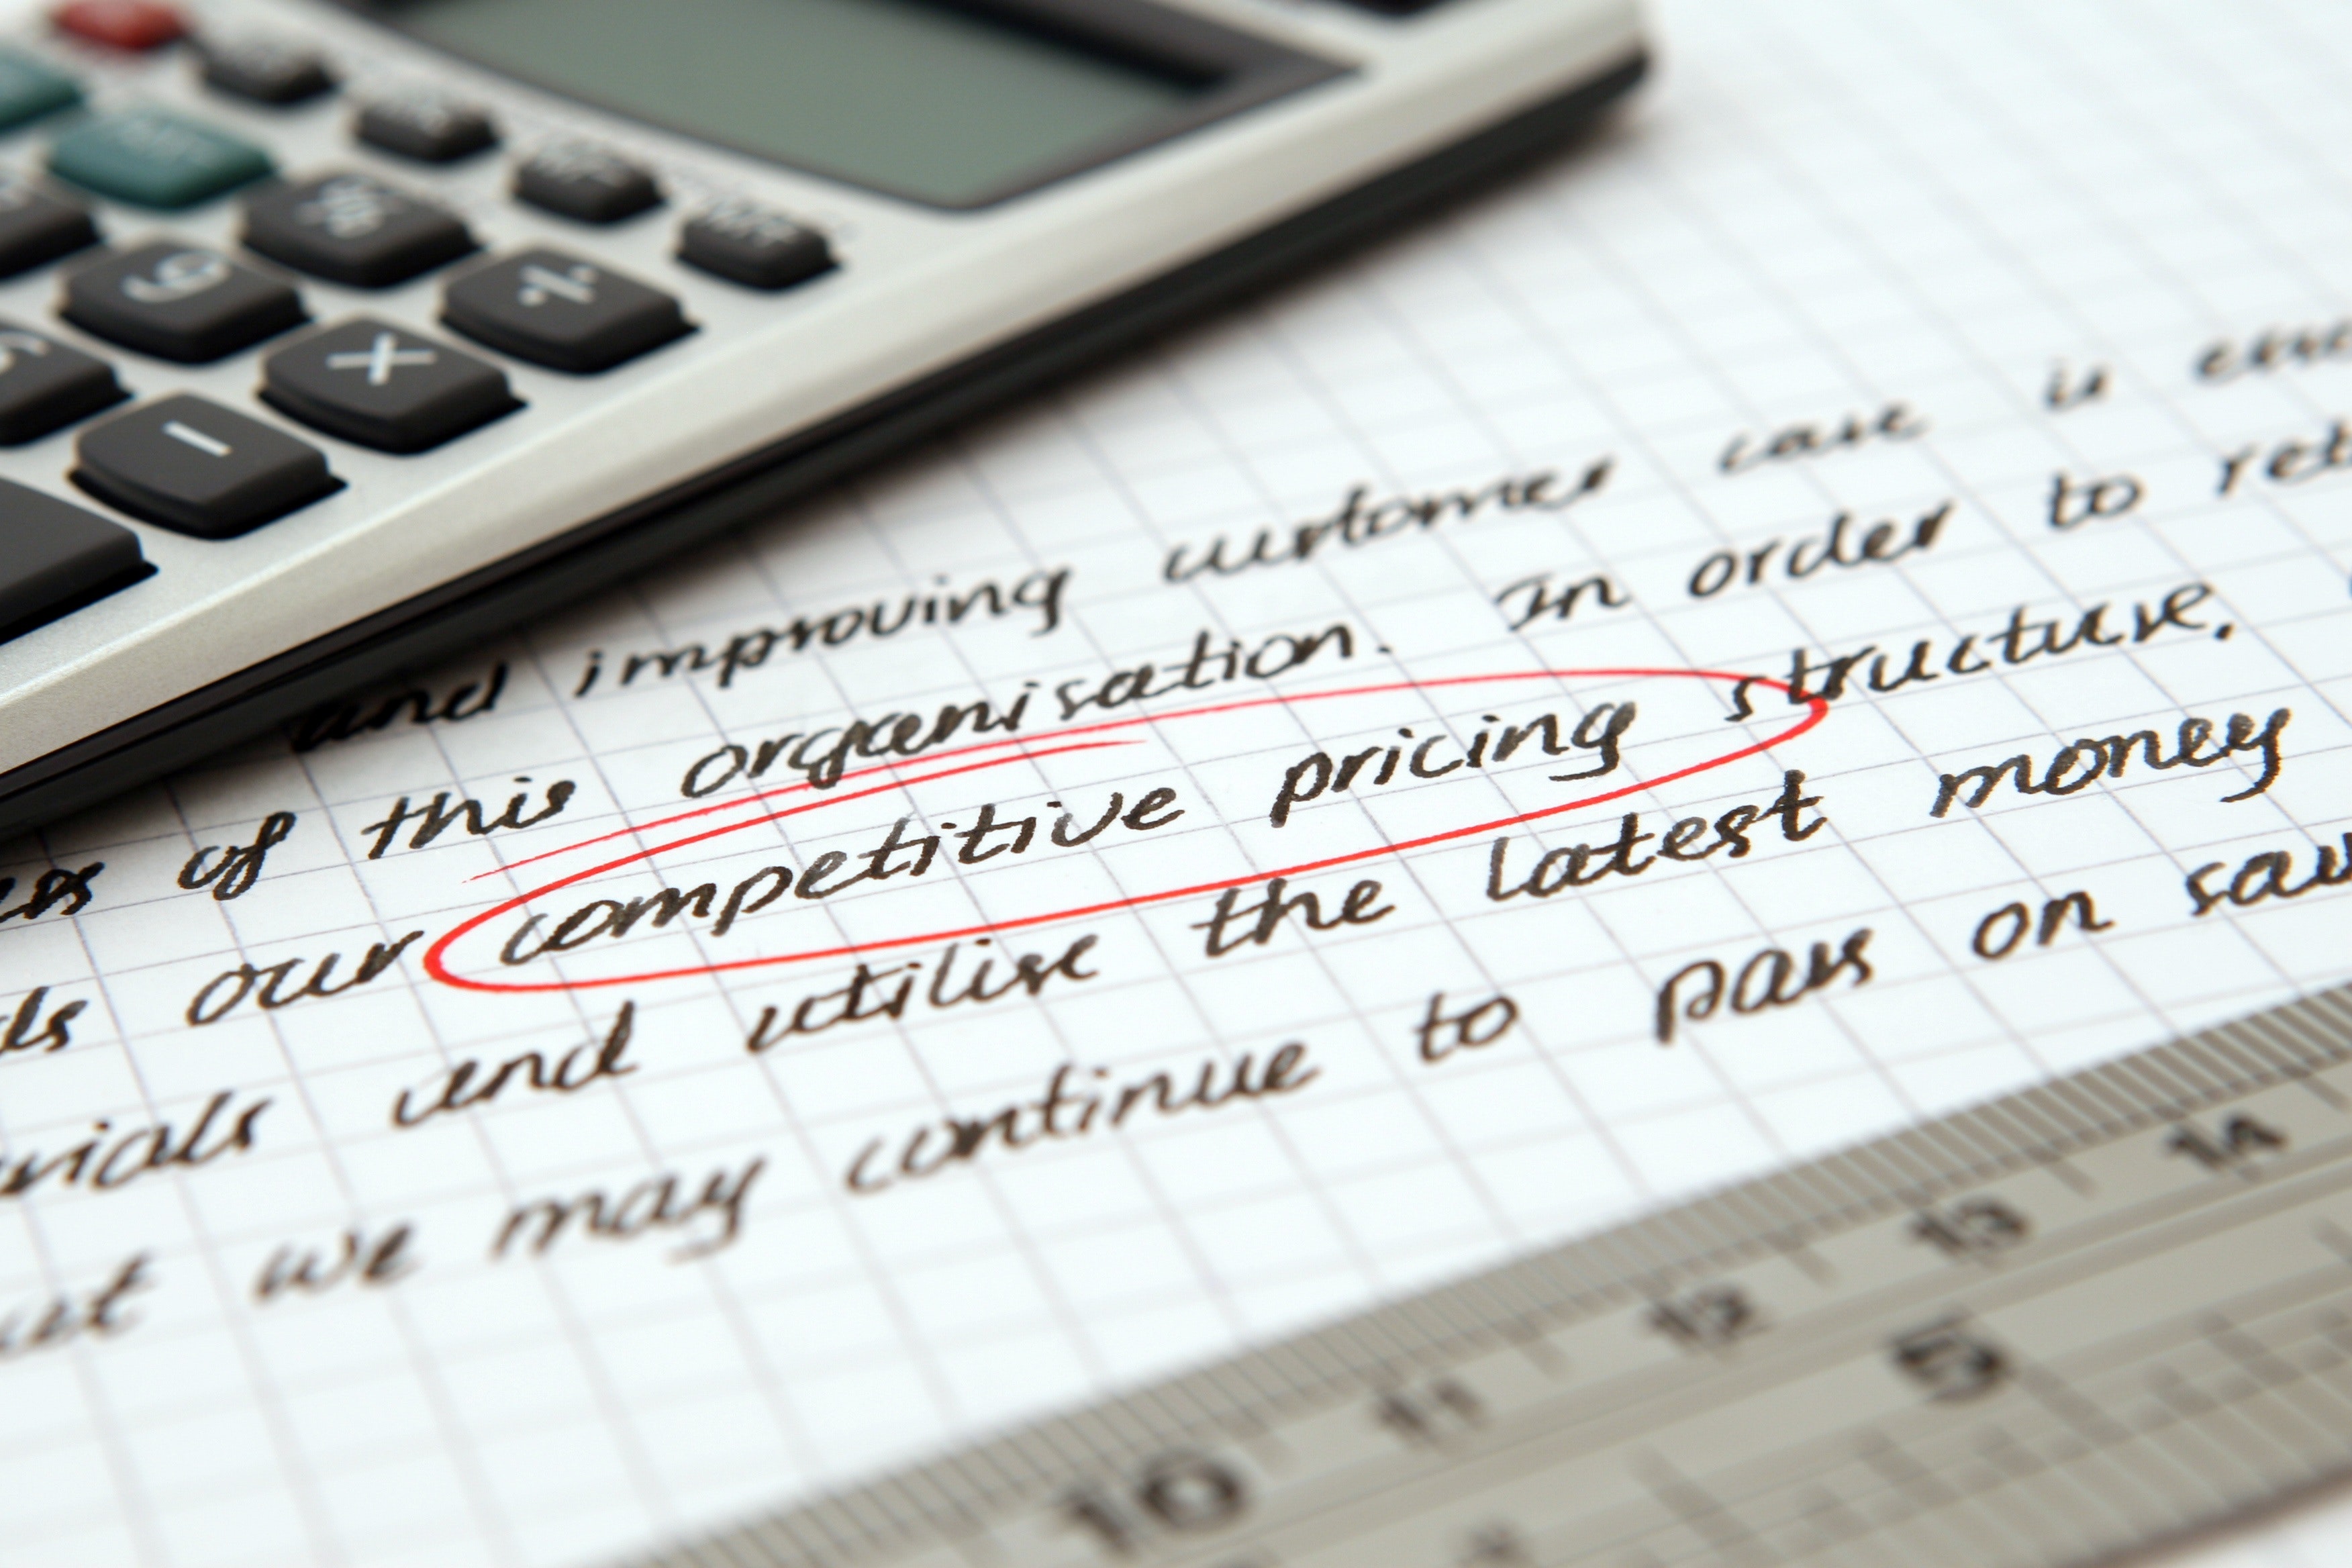 %
9
÷
×
−
and improving customer care is
of this organisation. In order to
our competitive pricing structure.
and utilise the latest money
we may continue to pass on
14
13
12
11
10
5